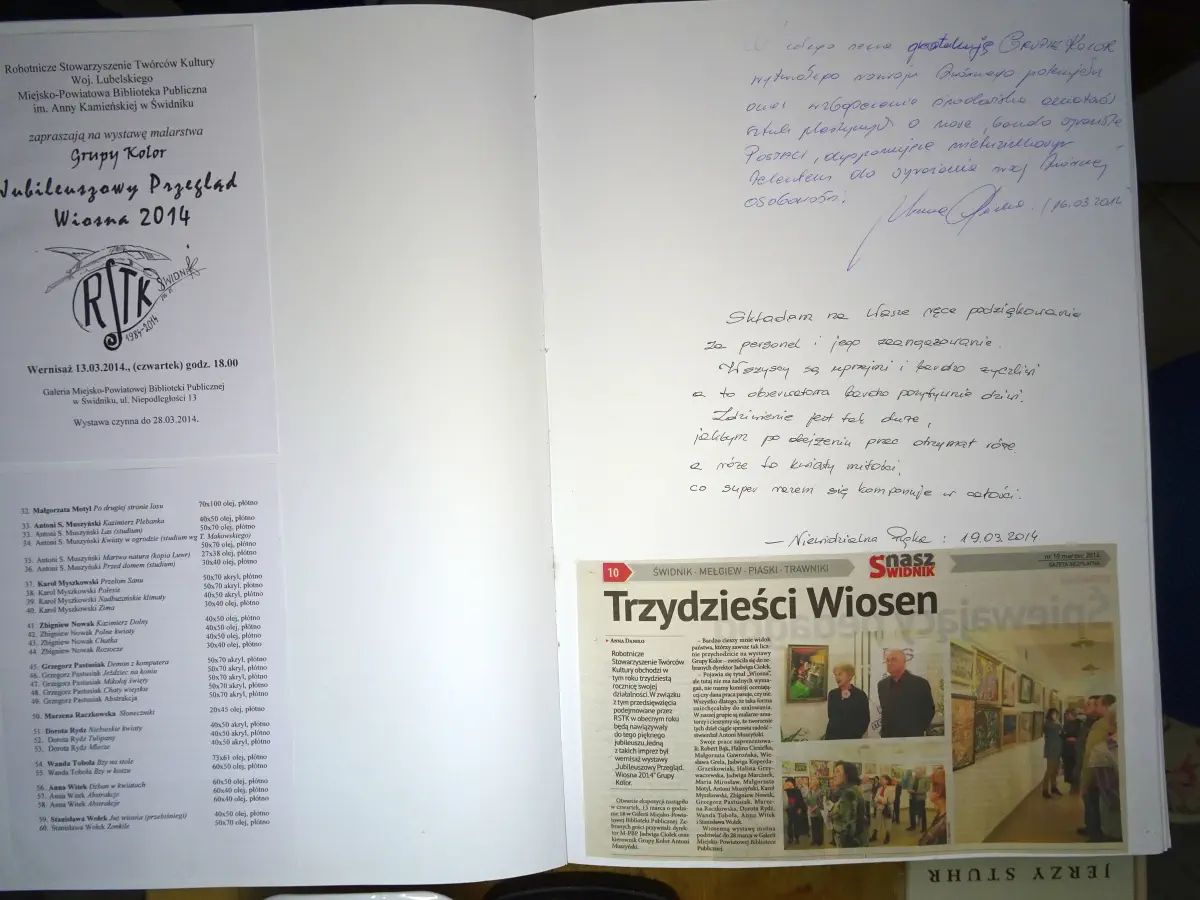 Robotnicze Stowarzyszenie Twórców Kultury
Woj. Lubelskiego
Miejsko-Powiatowa Biblioteka Publiczna
im. Anny Kamieńskiej w Świdniku
zapraszają na wystawę malarstwa
Grupy Kolor
Jubileuszowy Przegląd
Wiosna 2014
RSTK
ŚWIDNIK
1984-2014
Wernisaż 13.03.2014., (czwartek) godz. 18.00
Galeria Miejsko-Powiatowej Biblioteki Publicznej
w Świdniku, ul. Niepodległości 13
Wystawa czynna do 28.03.2014.
32. Małgorzata Motyl Po drugiej stronie lasu 70x100 olej, płótno
33. Antoni S. Muszyński Kazimierz Plebanka 40x50 olej, płótno
33. Antoni S. Muszyński Las (studium) 50x70 olej, płótno
34. Antoni S. Muszyński Kwiaty w ogrodzie (studium wg T. Makowskiego)
50x70 olej, płótno
35. Antoni S. Muszyński Martwa natura (kopia Luwr) 27x38 olej, płótno
36. Antoni S. Muszyński Przed domem (studium) 30x40 olej, płótno
37. Karol Myszkowski Przełom Sanu 50x70 akryl, płótno
38. Karol Myszkowski Polesie 50x70 akryl, płótno
39. Karol Myszkowski Nadbużańskie klimaty 40x50 akryl, płótno
40. Karol Myszkowski Zima 30x40 olej, płótno
41. Zbigniew Nowak Kazimierz Dolny 40x50 olej, płótno
42. Zbigniew Nowak Polne kwiaty 40x50 olej, płótno
43. Zbigniew Nowak Chatka 40x50 olej, płótno
44. Zbigniew Nowak Roztocze 30x40 olej, płótno
45. Grzegorz Pastusiak Demon z komputera 50x70 akryl, płótno
46. Grzegorz Pastusiak Jeździec na koniu 50x70 akryl, płótno
47. Grzegorz Pastusiak Mikołaj święty 50x70 akryl, płótno
48. Grzegorz Pastusiak Chaty wiejskie 50x70 akryl, płótno
49. Grzegorz Pastusiak Abstrakcja 50x70 akryl, płótno
50. Marzena Raczkowska Słoneczniki 20x45 olej, płótno
51. Dorota Rydz Niebieskie kwiaty 40x50 akryl, płótno
52. Dorota Rydz Tulipany 40x50 akryl, płótno
53. Dorota Rydz Mlecze 40x50 akryl, płótno
54. Wanda Tobola Bzy na stole 73x61 olej, płótno
55. Wanda Tobola Bzy w koszu 60x50 olej, płótno
56. Anna Witek Dzban w kwiatach 60x50 olej, płótno
57. Anna Witek Abstrakcje 60x40 olej, płótno
58. Anna Witek Abstrakcje 60x40 olej, płótno
59. Stanisława Wołek Już wiosna (przebiśniegi) 40x50 olej, płótno
60. Stanisława Wołek Żonkile 50x70 olej, płótno
serca gratuluję GRUPIE KOLOR
rozwoju potencjału
oraz wzbogacenia środowiska
sztuk plastycznych o nowe, bardzo
POSTACI, dysponujące
talentem do wyrażania swej twórczej
osobowości.
16.03.2014
Składam na Wasze ręce podziękowania
za personel i jego zaangażowanie.
Wszyscy są uprzejmi i bardzo życzliwi
a to obserwatora bardzo pozytywnie dziwi.
Zdziwienie jest tak duże,
jakbym po obejżeniu prac otrzymał róże
a róże to kwiaty miłości,
co super razem się komponuje w całości.
– Niewidzialna Ręka : 19.03.2014
10
ŚWIDNIK - MEŁGIEW - PIASKI - TRAWNIKI
nasz ŚWIDNIK
nr 10 marzec 2014
GAZETA BEZPŁATNA
Trzydzieści Wiosen
Robotnicze
Stowarzyszenie Twórców
Kultury obchodzi w
tym roku trzydziestą
rocznicę swojej
działalności. W związku
z tym przedsięwzięcia
podejmowane przez
RSTK w obecnym roku
będą nawiązywały
do tego pięknego
jubileuszu. Jedną
z takich imprez był
wernisaż wystawy
„Jubileuszowy Przegląd.
Wiosna 2014” Grupy
Kolor.
Otwarcie ekspozycji nastąpiło
w czwartek, 13 marca o godzi-
nie 18 w Galerii Miejsko-Powia-
towej Biblioteki Publicznej. Ze-
branych gości przywitali: dyrek-
tor M-PBP, Jadwiga Ciołek oraz
kierownik Grupy Kolor Antoni
Muszyński.
– Bardzo cieszy mnie widok
państwa, którzy zawsze tak licz-
nie przychodzicie na wystawy
Grupy Kolor – zwróciła się do ze-
branych dyrektor Jadwiga Ciołek.
– Pojawia się tytuł „Wiosna”,
ale tutaj nie ma żadnych wyma-
gań, nie mamy komisji oceniają-
cej czy dana praca pasuje, czy nie.
Wszystko dlatego, że taka forma
zniechęcałaby do malowania.
W naszej grupie są malarze-ama-
torzy i cieszymy się, że tworzenie
tych dzieł ciągle sprawia radość –
stwierdził Antoni Muszyński.
Swoje prace zaprezentowa-
li: Robert Bąk, Halina Ciesielka,
Małgorzata Gawrońska, Wie-
sława Grela, Jadwiga Koperda-
-Grześkowiak, Halina Grzy-
waczewska, Jadwiga Marcherk,
Maria Mirosław, Małgorzata
Motyl, Antoni Muszyński, Karol
Myszkowski, Zbigniew Nowak,
Grzegorz Pastusiak, Marze-
na Raczkowska, Dorota Rydz,
Wanda Tobola, Anna Witek
i Stanisława Wołek.
Wiosenną wystawę można
podziwiać do 28 marca w Galerii
Miejsko-Powiatowej Bibliotece
Publicznej.
JERZY STUHR